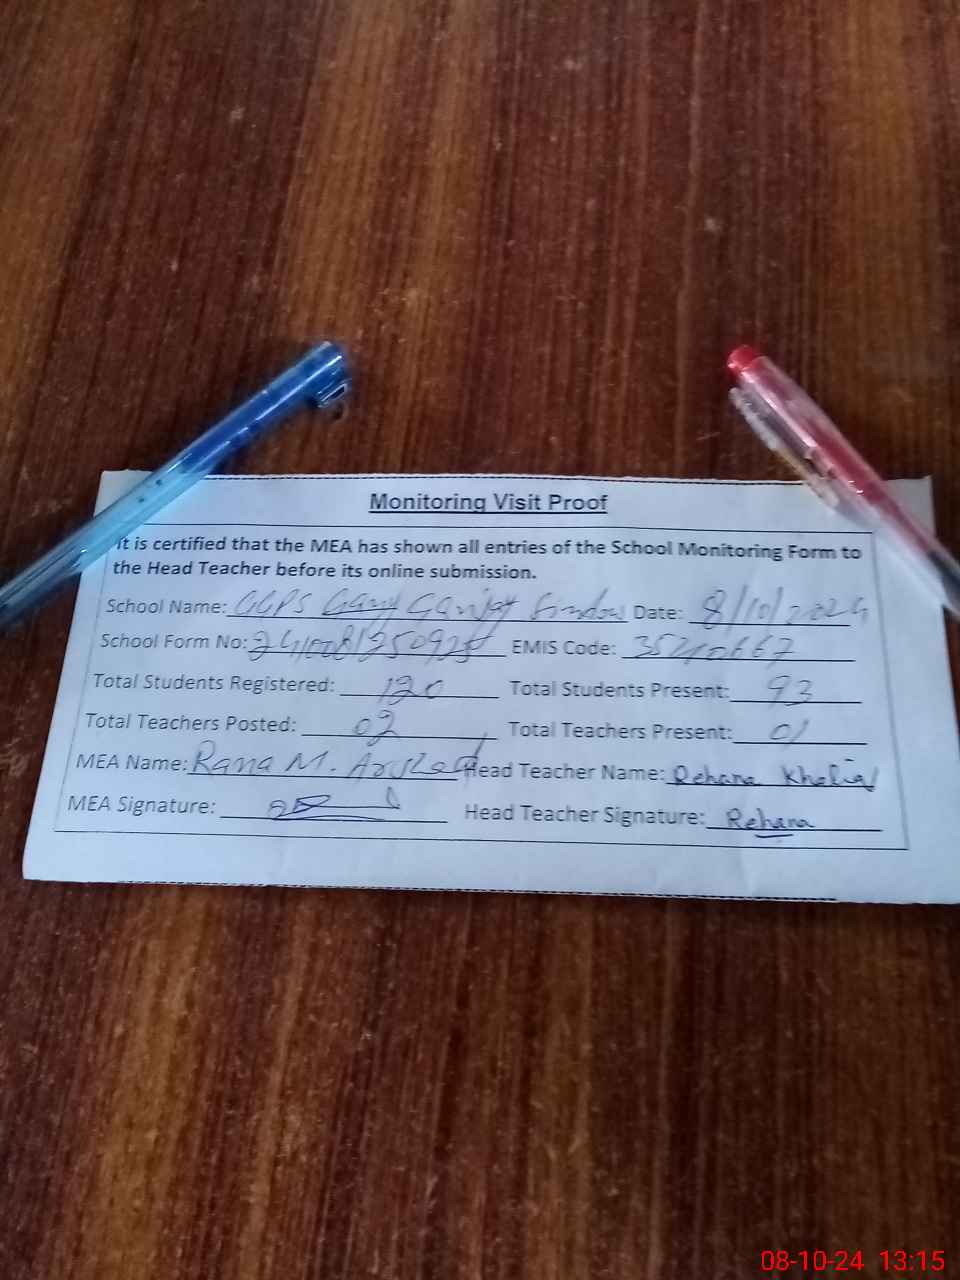 Monitoring Visit Proof
It is certified that the MEA has shown all entries of the School Monitoring Form to
the Head Teacher before its online submission.
School Name: GGPS Date: 8/10/2024
School Form No: EMIS Code:
Total Students Registered: 120 Total Students Present: 93
Total Teachers Posted: 02 Total Teachers Present: 01
MEA Name: Rana M. Arshad Head Teacher Name: Rehana Khalid
MEA Signature: Head Teacher Signature: Rehana
08-10-24 13:15